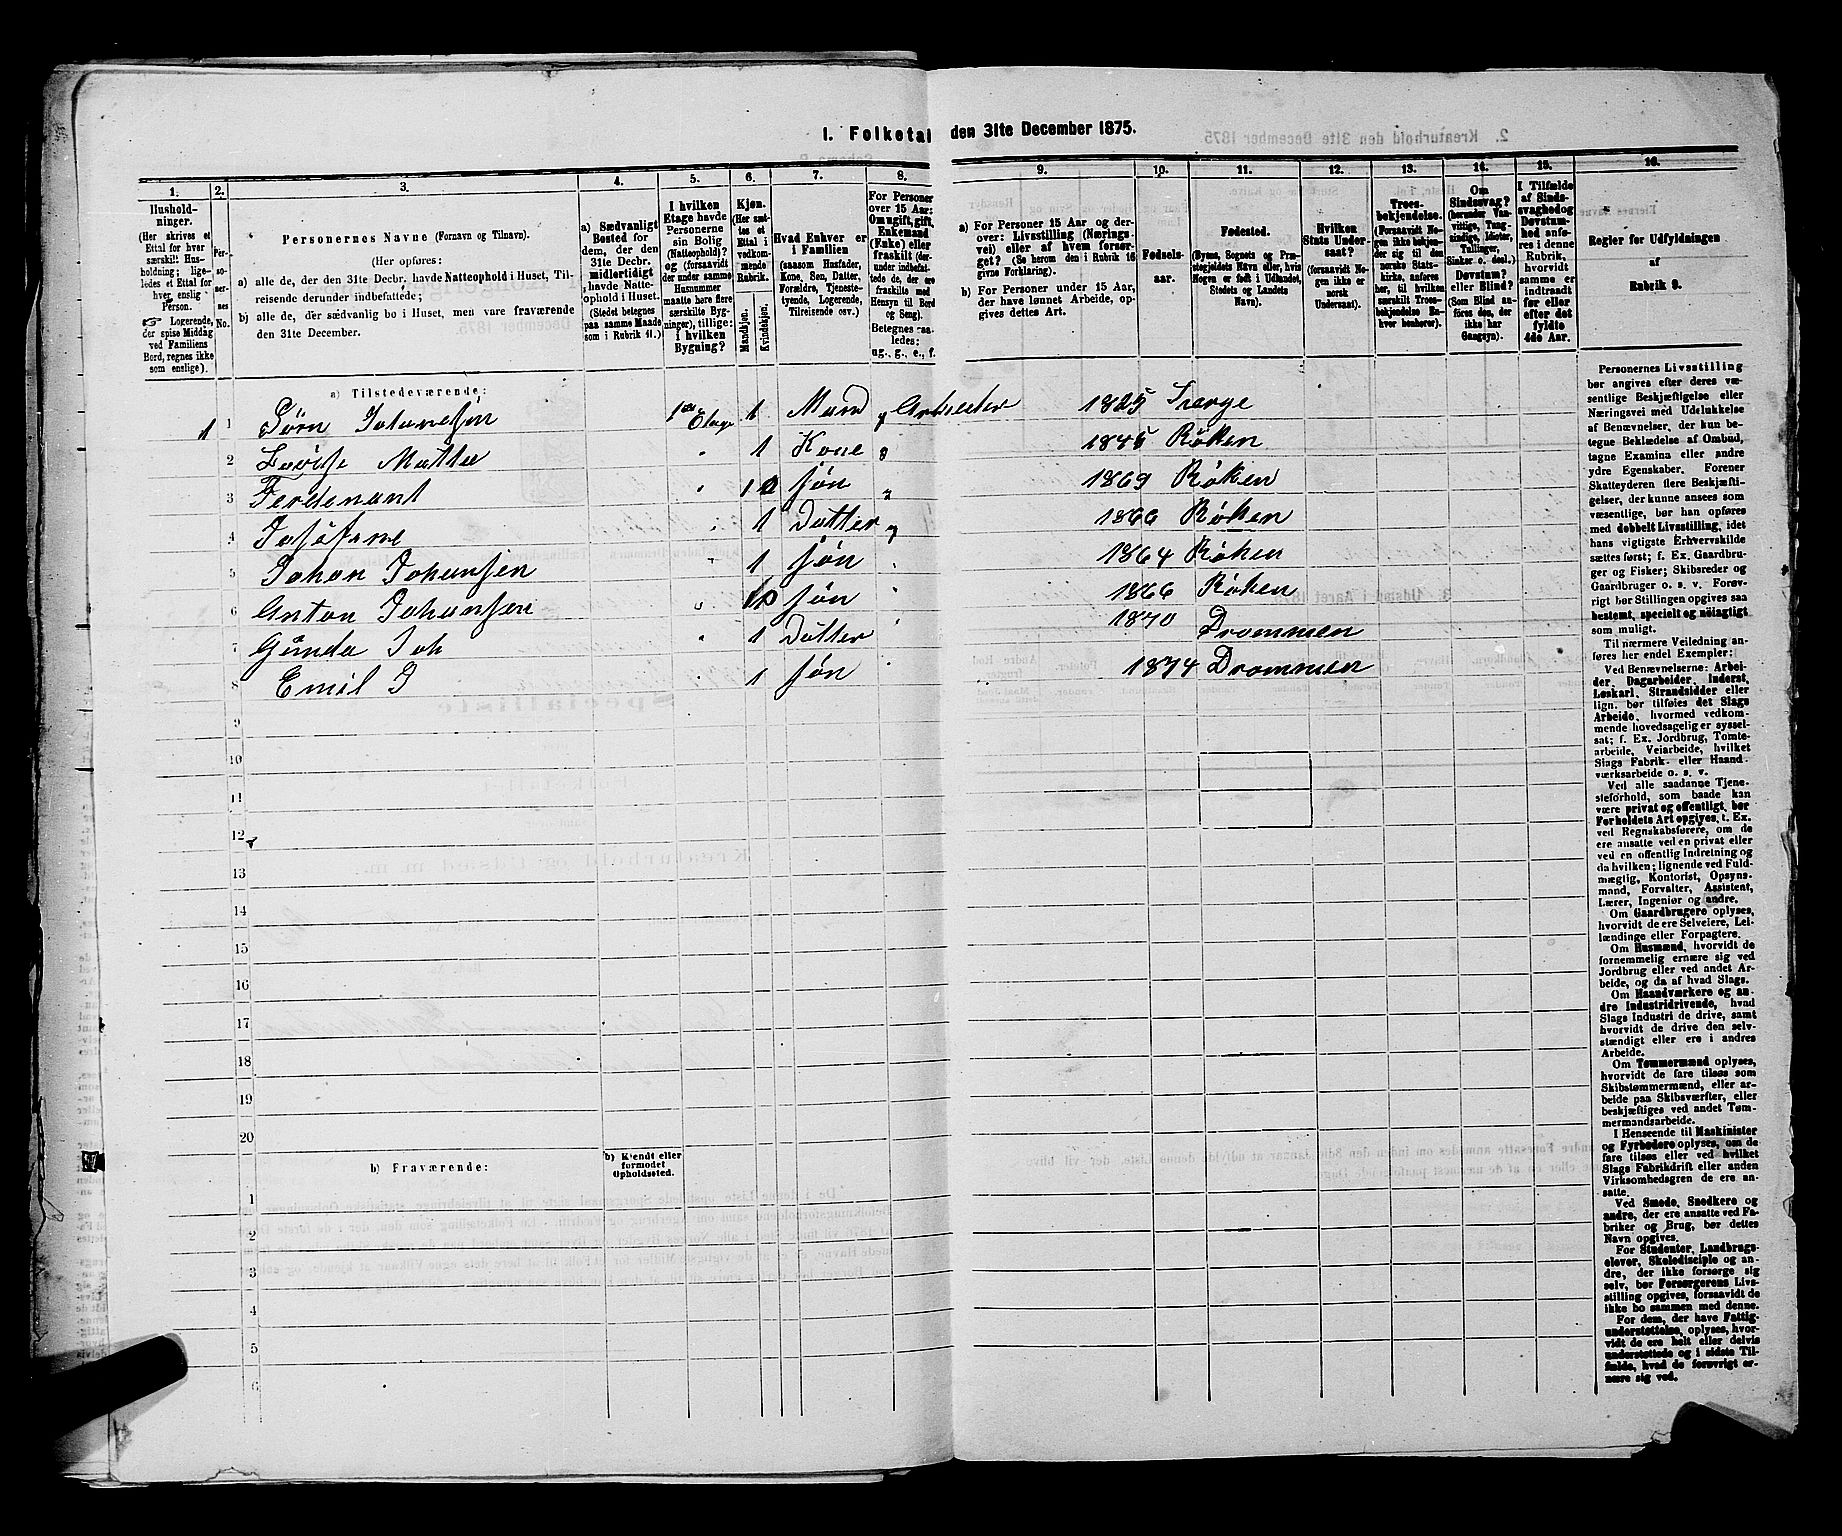 I. Folketal den 31te December 1875.
1. 2. 3. 4. 5. 6. 7. 8. 9. 10. 11. 12. 13. 14. 15. 16.
Husholdninger.
(Her skrives et
Ettal for hver
særskilt Husholdning; ligeledes
et Ettal for
hver enslig
Person.
Logerende,
der spise Middag
ved Familiens
Bord, regnes ikke
som enslige).
Personernes No.
Personernes Navne (Fornavn og Tilnavn).
(Her opføres:
a) alle de, der den 31te Decbr. havde Natteophold i Huset, Tilreisende
derunder indbefattede;
b) alle de, der sædvanlig bo i Huset, men vare fraværende
den 31te December.
a) Sædvanligt
Bosted for
dem, der den
31te Decbr.
midlertidigt
havde Natteophold
i Huset.
(Stedet betegnes
paa samme Maade
som i Rubrik 11.)
I hvilken
Etage havde
Personerne
sin Bolig
(Natteophold)?
og (forsaavidt
der under samme
Husnummer
maatte høre flere
særskilte Bygninger),
tillige:
i hvilken
Bygning?
Kjøn.
(Her sættes
et
Ettal i
vedkommende
Rubrik.
Mandkjøn.
Kvindekjøn.
Hvad Enhver er
i Familien
(saasom Husfader,
Kone, Søn, Datter,
Forældre, Tjenestetyende,
Logerende,
Tilreisende osv.)
For Personer
over 15 Aar:
Om ugift, gift,
Enkemand
(Enke) eller
fraskilt (derunder
indbefattede
de, der ere
fraskilte med
Hensyn til Bord
og Seng).
Betegnes saaledes:
ug., g., e., f.
a) For Personer 15 Aar og derover:
Livsstilling (Næringsvei)
eller af hvem forsørget?
(Se herom den i Rubrik 16
givne Forklaring).
b) For Personer under 15 Aar,
der have lønnet Arbeide, opgives
dettes Art.
Fødselsaar.
Fødested.
(Byens, Sognets og Præstegjeldets
Navn eller, hvis
Nogen er født i Udlandet,
Stedets og Landets
Navn).
Hvilken
Stats Undersaat?
(forsaavidt Nogen
ikke er
norsk
Undersaat).
Troesbekjendelse.
(Forsaavidt Nogen
ikke bekjender
sig til den
norske Statskirke,
anføres
her, til hvilken
særskilt Troesbekjendelse
Enhver
henhører).
Om
Sindssvag?
(herunder Vanvittige,
Tungsindige,
Idioter,
Tullinger,
Sinker o. desl.)
Døvstum?
eller Blind?
(Som Blind anføres
den, der
ikke har
Gangsyn).
I Tilfælde
af Sindssvaghed
og
Døvstumhed
anføres
i denne
Rubrik,
hvorvidt
samme er
indtraadt
før eller
efter det
fyldte
4de Aar.
Regler for Udfyldningen
af
Rubrik 9.
a) Tilstedeværende:
1 1 Jørn Johanesen 1ste Etage 1 Mand g Arbeider 1825 Sverge
2 Lovise Mattea " 1 Kone g 1845 Røken
3 Ferdenant " 1 Søn " 1869 Røken
4 Josefine " 1 Datter " 1866 Røken
5 Johan Johansen " 1 Søn " 1864 Røken
6 Anton Johansen " 1 Søn " 1866 Røken
7 Gunda Joh " 1 Datter " 1870 Drommen
8 Emil J 1 Søn " 1874 Drommen
9
10
11
12
13
14
15
16
17
18
19
20
b) Fraværende:
b) Kjendt eller
formodet
Opholdssted.
1
2
3
4
5
6
Personernes Livsstilling
bør angives efter deres væsentlige
Beskjæftigelse eller
Næringsvei med Udelukkelse
af Benævnelser, der kun betegne
Beklædelse af Ombud,
tagne Examina eller andre
ydre Egenskaber. Forener
Skatteyderen flere Beskjæftigelser,
der kunne ansees som
væsentlige, bør han opføres
med dobbelt Livsstilling, idet
hans vigtigste Erhvervskilde
sættes først; f. Ex. Gaardbruger
og Fisker; Skibsreder og
Gaardbruger o. s. v. Forøvrigt
bør Stillingen opgives saa
bestemt, specielt og nöiagtigt
som muligt.
Til nærmere Veiledning anføres
her endel Exempler:
Ved Benævnelserne: Arbeider,
Dagarbeider, Inderst,
Løskarl, Strandsidder eller
lign. bør tilføies det Slags
Arbeide, hvormed vedkommende
hovedsagelig er sysselsat;
f. Ex. Jordbrug, Tomtearbeide,
Veiarbeide, hvilket
Slags Fabrik- eller Haandværksarbeide
o. s. v.
Ved alle saadanne Tjenesteforhold,
som baade kan
være privat og offentligt, bør
Forholdets Art opgives, t. Ex.
ved Regnskabsførere, om de
ere ansatte ved en privat eller
ved en offentlig Indretning og
da hvilken; lignende ved Fuldmægtig,
Kontorist, Opsynsmand,
Forvalter, Assistent,
Lærer, Ingeniør og andre.
Om Gaardbrugere oplyses,
hvorvidt de ere Selveiere, Leilændinge
eller Forpagtere.
Om Husmænd, hvorvidt de
fornemmelig ernære sig ved
Jordbrug eller ved andet Arbeide,
og da af hvad Slags.
Om Haandværkere og andre
Industridrivende, hvad
Slags Industri de drive, samt
hvorvidt de drive den selvstændigt
eller ere i andres
Arbeide.
Om Tømmermænd oplyses,
hvorvidt de fare tilsøs som
Skibstømmermænd, eller arbeide
paa Skibsværfter, eller
beskjæftiges ved andet Tømmermandsarbeide.
I Henseende til Maskinister
og Fyrbødere oplyses, om de
fare tilsøs eller ved hvilket
Slags Fabrikdrift eller anden
Virksomhedsgren de ere ansatte.
Ved Smede, Snedkere og
andre, der ere ansatte ved Fabriker
og Brug, bør dettes
Navn opgives.
For Studenter, Landbrugselever,
Skoledisciple og andre,
der ikke forsørge sig
selv, bør Forsørgerens Livsstilling
opgives, forsaavidt de
ikke bo sammen med denne.
For dem, der have Fattigunderstøttelse,
oplyses, hvorvidt
de ere helt eller delvis
understøttede og i sidste Tilfælde,
hvad de forøvrigt ernære
sig ved.